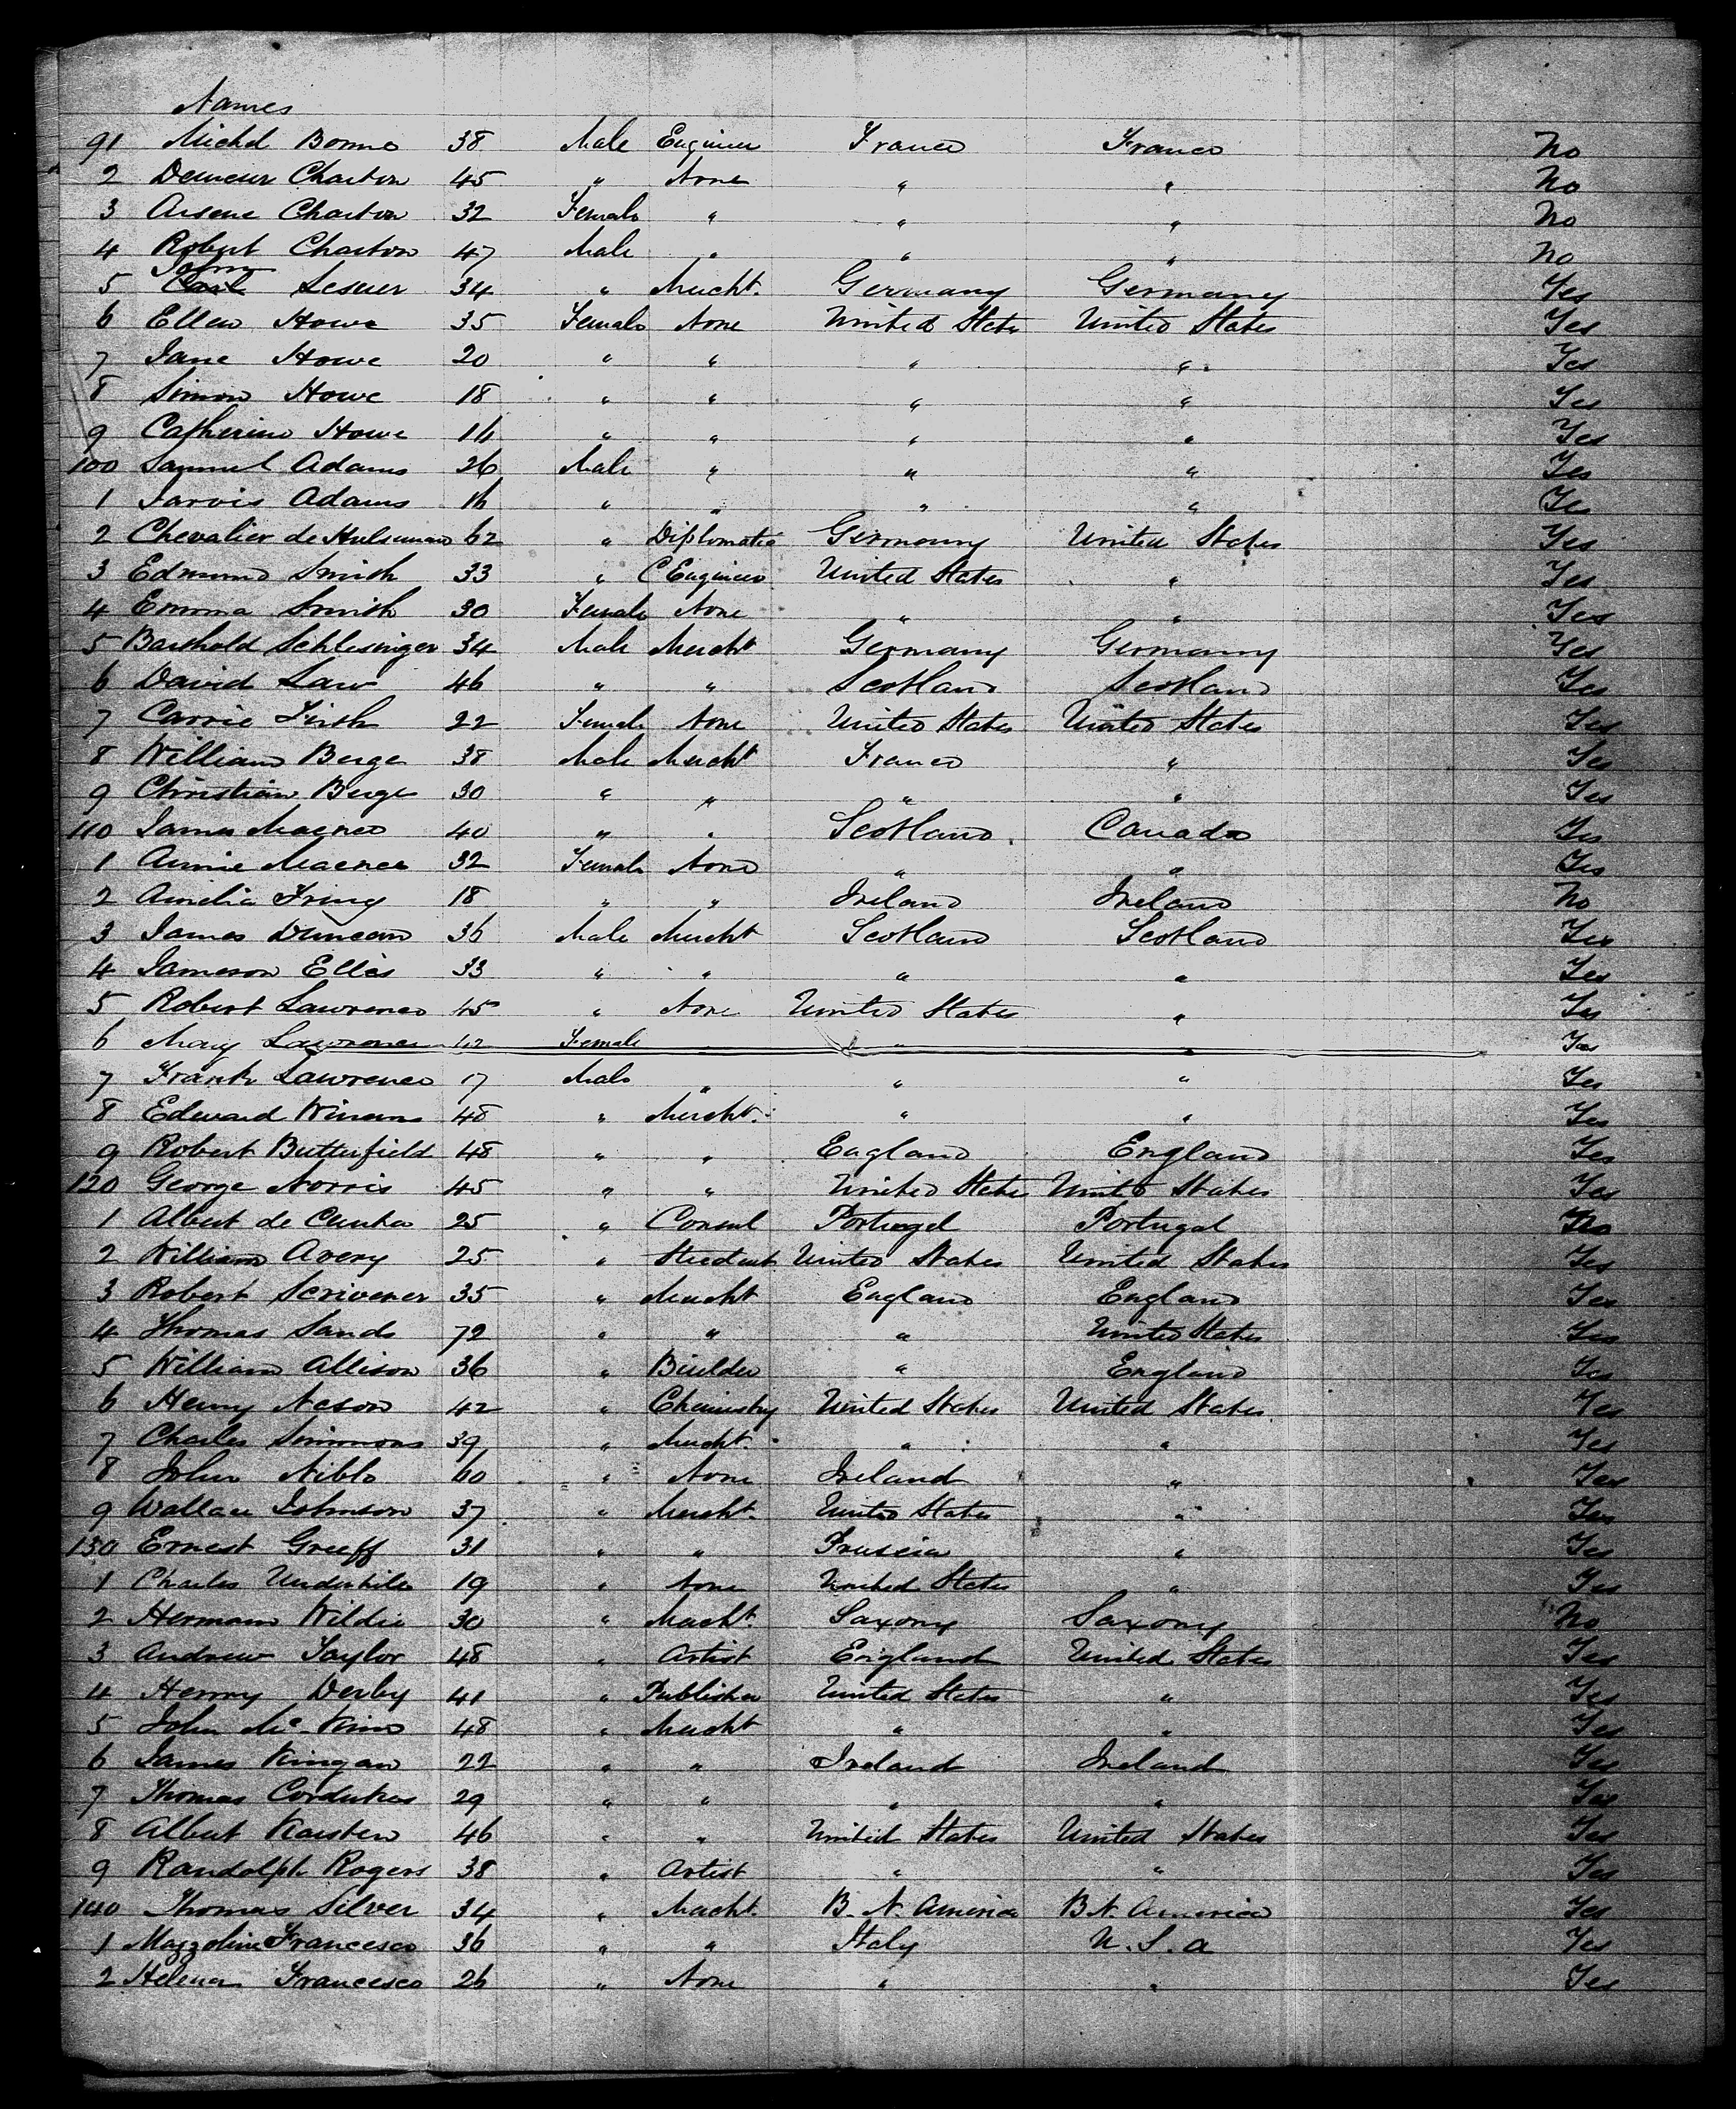 Names
91 Michel Bonno 38 Male Engineer France France No
2 Demeur Charton 45 " None " " No
3 Arsene Charton 32 Female " " " No
4 Robert Charton 47 Male " " " No
John
5 Carl Lesuer 34 " Mercht. Germany Germany Yes
6 Ellen Howe 35 Female None United States United States Yes
7 Jane Howe 20 " " " " Yes
8 Simon Howe 18 " " " " Yes
9 Catherine Howe 16 " " " " Yes
100 Samuel Adams 26 Male " " " Yes
1 Jarvis Adams 16 " " " " Yes
2 Chevalier de Hulseman 62 " Diplomatic Germany United States Yes
3 Edmund Smith 33 " C Engineer United States " Yes
4 Emma Smith 30 Female None " " Yes
5 Barthold Schlesinger 34 Male Mercht Germany Germany Yes
6 David Law 46 " " Scotland Scotland Yes
7 Carrie Firth 22 Female None United States United States Yes
8 William Berge 38 Male Mercht France " Yes
9 Christian Berge 30 " " " " Yes
110 James Macnee 40 " " Scotland Canada Yes
1 Annie Macnee 32 Female None " " Yes
2 Amelia 18 " " Ireland Ireland No
3 James Duncan 36 Male Mercht Scotland Scotland Yes
4 Jameson Ellis 33 " " " " Yes
5 Robert Lawrence 45 " None United States " Yes
6 Mary Lawrence 42 Female " " " Yes
7 Frank Lawrence 17 Male " " " Yes
8 Edward Winans 48 " Mercht. " " Yes
9 Robert Butterfield 48 " " England England Yes
120 George Norris 45 " " United States United States Yes
1 Albert de Cunha 25 " Consul Portugal Portugal
2 William Avery 25 " Student United States United States Yes
3 Robert Scrivener 35 " Mercht England England Yes
4 Thomas Sands 72 " " " United States Yes
5 William Allison 36 " Builder " England Yes
6 Henry Nason 42 " Chemistry United States United States Yes
7 Charles Simmons 39 " Mercht. " " Yes
8 John Niblo 60 " None Ireland " Yes
9 Wallace Johnson 37 " Mercht. United States " Yes
130 Ernest Greeff 31 " " Prussia " Yes
1 Charles Underhill 19 " None United States " Yes
2 Hermann Wildie 30 " Mercht. Saxony Saxony No
3 Andrew Taylor 48 " Artist England United States Yes
4 Henry Derby 41 " Publisher United States " Yes
5 John Mc Kim 48 " Mercht " " Yes
6 James Kingan 22 " " Ireland Ireland Yes
7 Thomas Cordukes 29 " " " " Yes
8 Albert Karsten 46 " " United States United States Yes
9 Randolph Rogers 38 " Artist " " Yes
140 Thomas Silver 34 " Mercht. B. N. America B N. America Yes
1 Mazzolini Francesco 36 " " Italy U. S. A Yes
2 Helena Francesco 26 " None " " Yes